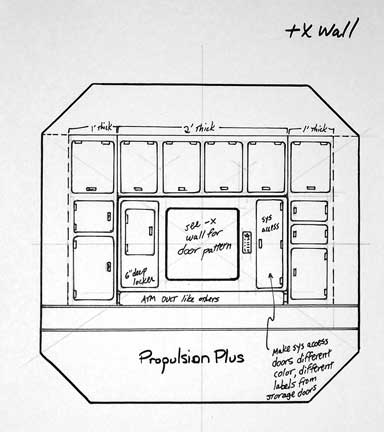 +X Wall
1' thick
2' thick
1' thick
see -X
wall for
door pattern
sys
access
6" deep
locker
ATM DUCT like others
Propulsion Plus
Make sys access
doors different
color, different
labels from
storage doors